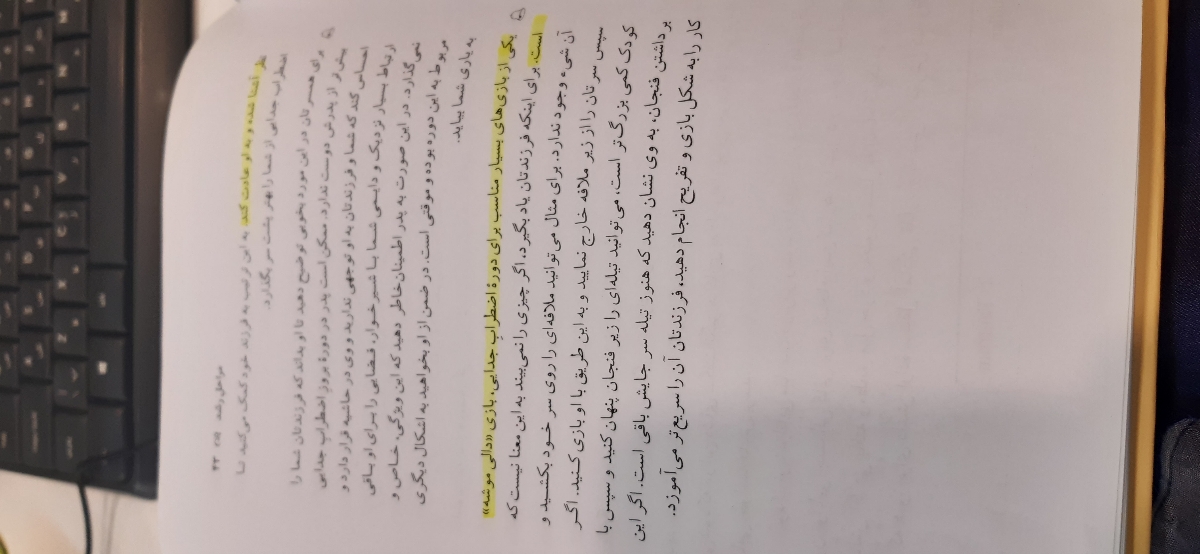 مراحل رشد ۴۳
نظر آشنا شده و به او عادت کند. به این ترتیب به فرزند خود کمک می‌کنید تا
اضطراب جدایی از شما را بهتر پشت سر بگذارد.
برای همسرتان در این مورد بخوبی توضیح دهید تا او بداند که فرزندتان شما را
بیش تر از پدرش دوست ندارد. ممکن است پدر در دورهٔ بروز اضطراب جدایی
احساس کند که شما و فرزندتان به او توجهی ندارید و وی در حاشیه قرار دارد و
ارتباط بسیار نزدیک و دایمی شما با شیرخوار، فضایی را برای او باقی
نمی گذارد. در این صورت به پدر اطمینان خاطر دهید که این ویژگی، خاص و
مربوط به این دوره بوده و موقتی است. در ضمن از او بخواهید به اشکال دیگری
به یاری شما بیاید.
یکی از بازی‌های بسیار مناسب برای دورهٔ اضطراب جدایی، بازی «دالی موشه»
است. برای اینکه فرزندتان یاد بگیرد، اگر چیزی را نمی‌بیند به این معنا نیست که
آن شیء وجود ندارد. برای مثال می‌توانید ملافه‌ای را روی سر خود بکشید و
سپس سرتان را از زیر ملافه خارج نمایید و به این طریق با او بازی کنید. اگر
کودک کمی بزرگ‌تر است، می‌توانید تیله‌ای را زیر فنجان پنهان کنید و سپس با
برداشتن فنجان، به وی نشان دهید که هنوز تیله سر جایش باقی است. اگر این
کار را به شکل بازی و تفریح انجام دهید، فرزندتان آن را سریع‌تر می‌آموزد.